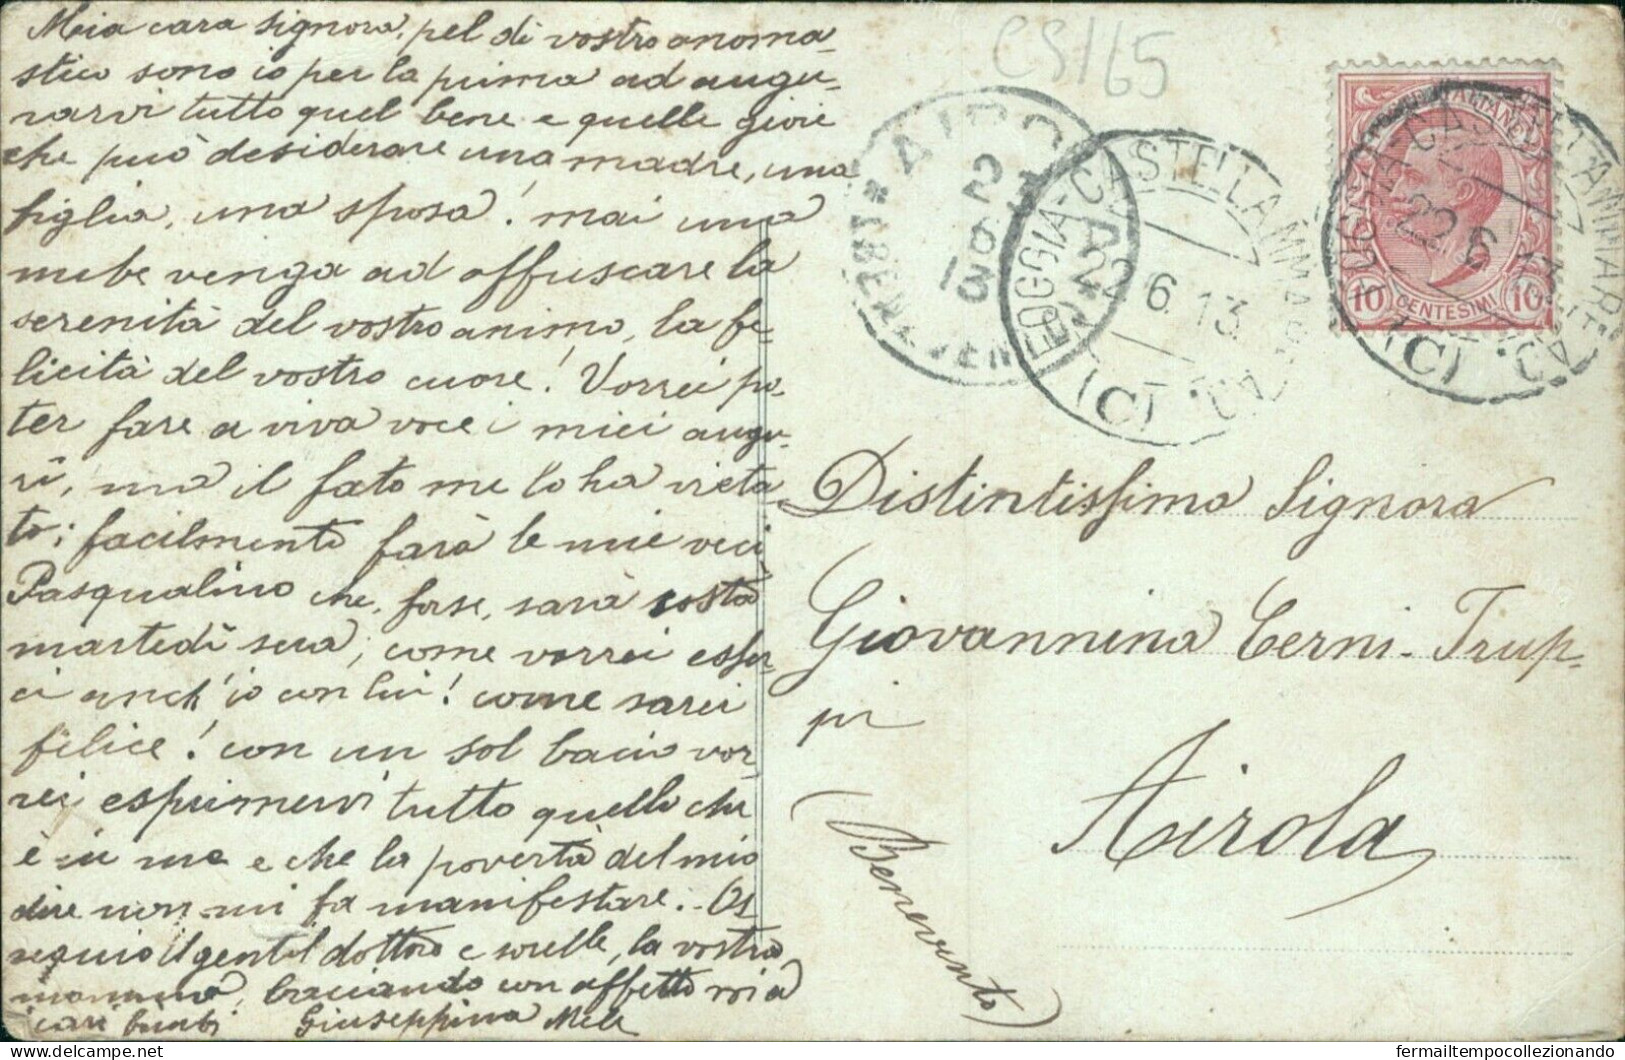 Mia cara signora, pel dì vostro onoma-
stico sono io per la prima ad augu-
rarvi tutto quel bene e quelle gioie
che può desiderare una madre, una
figlia, una sposa! mai una
nube venga ad offuscare la
serenità del vostro animo, la fe-
licità del vostro cuore! Vorrei po-
ter fare a viva voce i miei augu-
ri, ma il fato me lo ha vieta-
to; facilmente farà le mie veci
Pasqualino che, forse, sarà costà
martedì sera; come vorrei esser-
ci anch'io con lui! come sarei
felice! con un sol bacio vor-
rei esprimervi tutto quello che
è in me e che la povertà del mio
dire non mi fa manifestare. Os
sequio il gentil dottore e sorelle, la vostra
mamma, baciando con affetto voi e
i cari bimbi Giuseppina Mele
CS165
FOGGIA-CASTELLAMMARE
22 6 13
(C)
* AIRO
BENEVENTO
FOGGIA-CASTELLAMMARE
22 6 13
(C)
10 CENTESIMI 10
Distintissima Signora
Giovannina Cerni-Trup-
pi
Airola
(Benevento)
fermailtempocollezionando